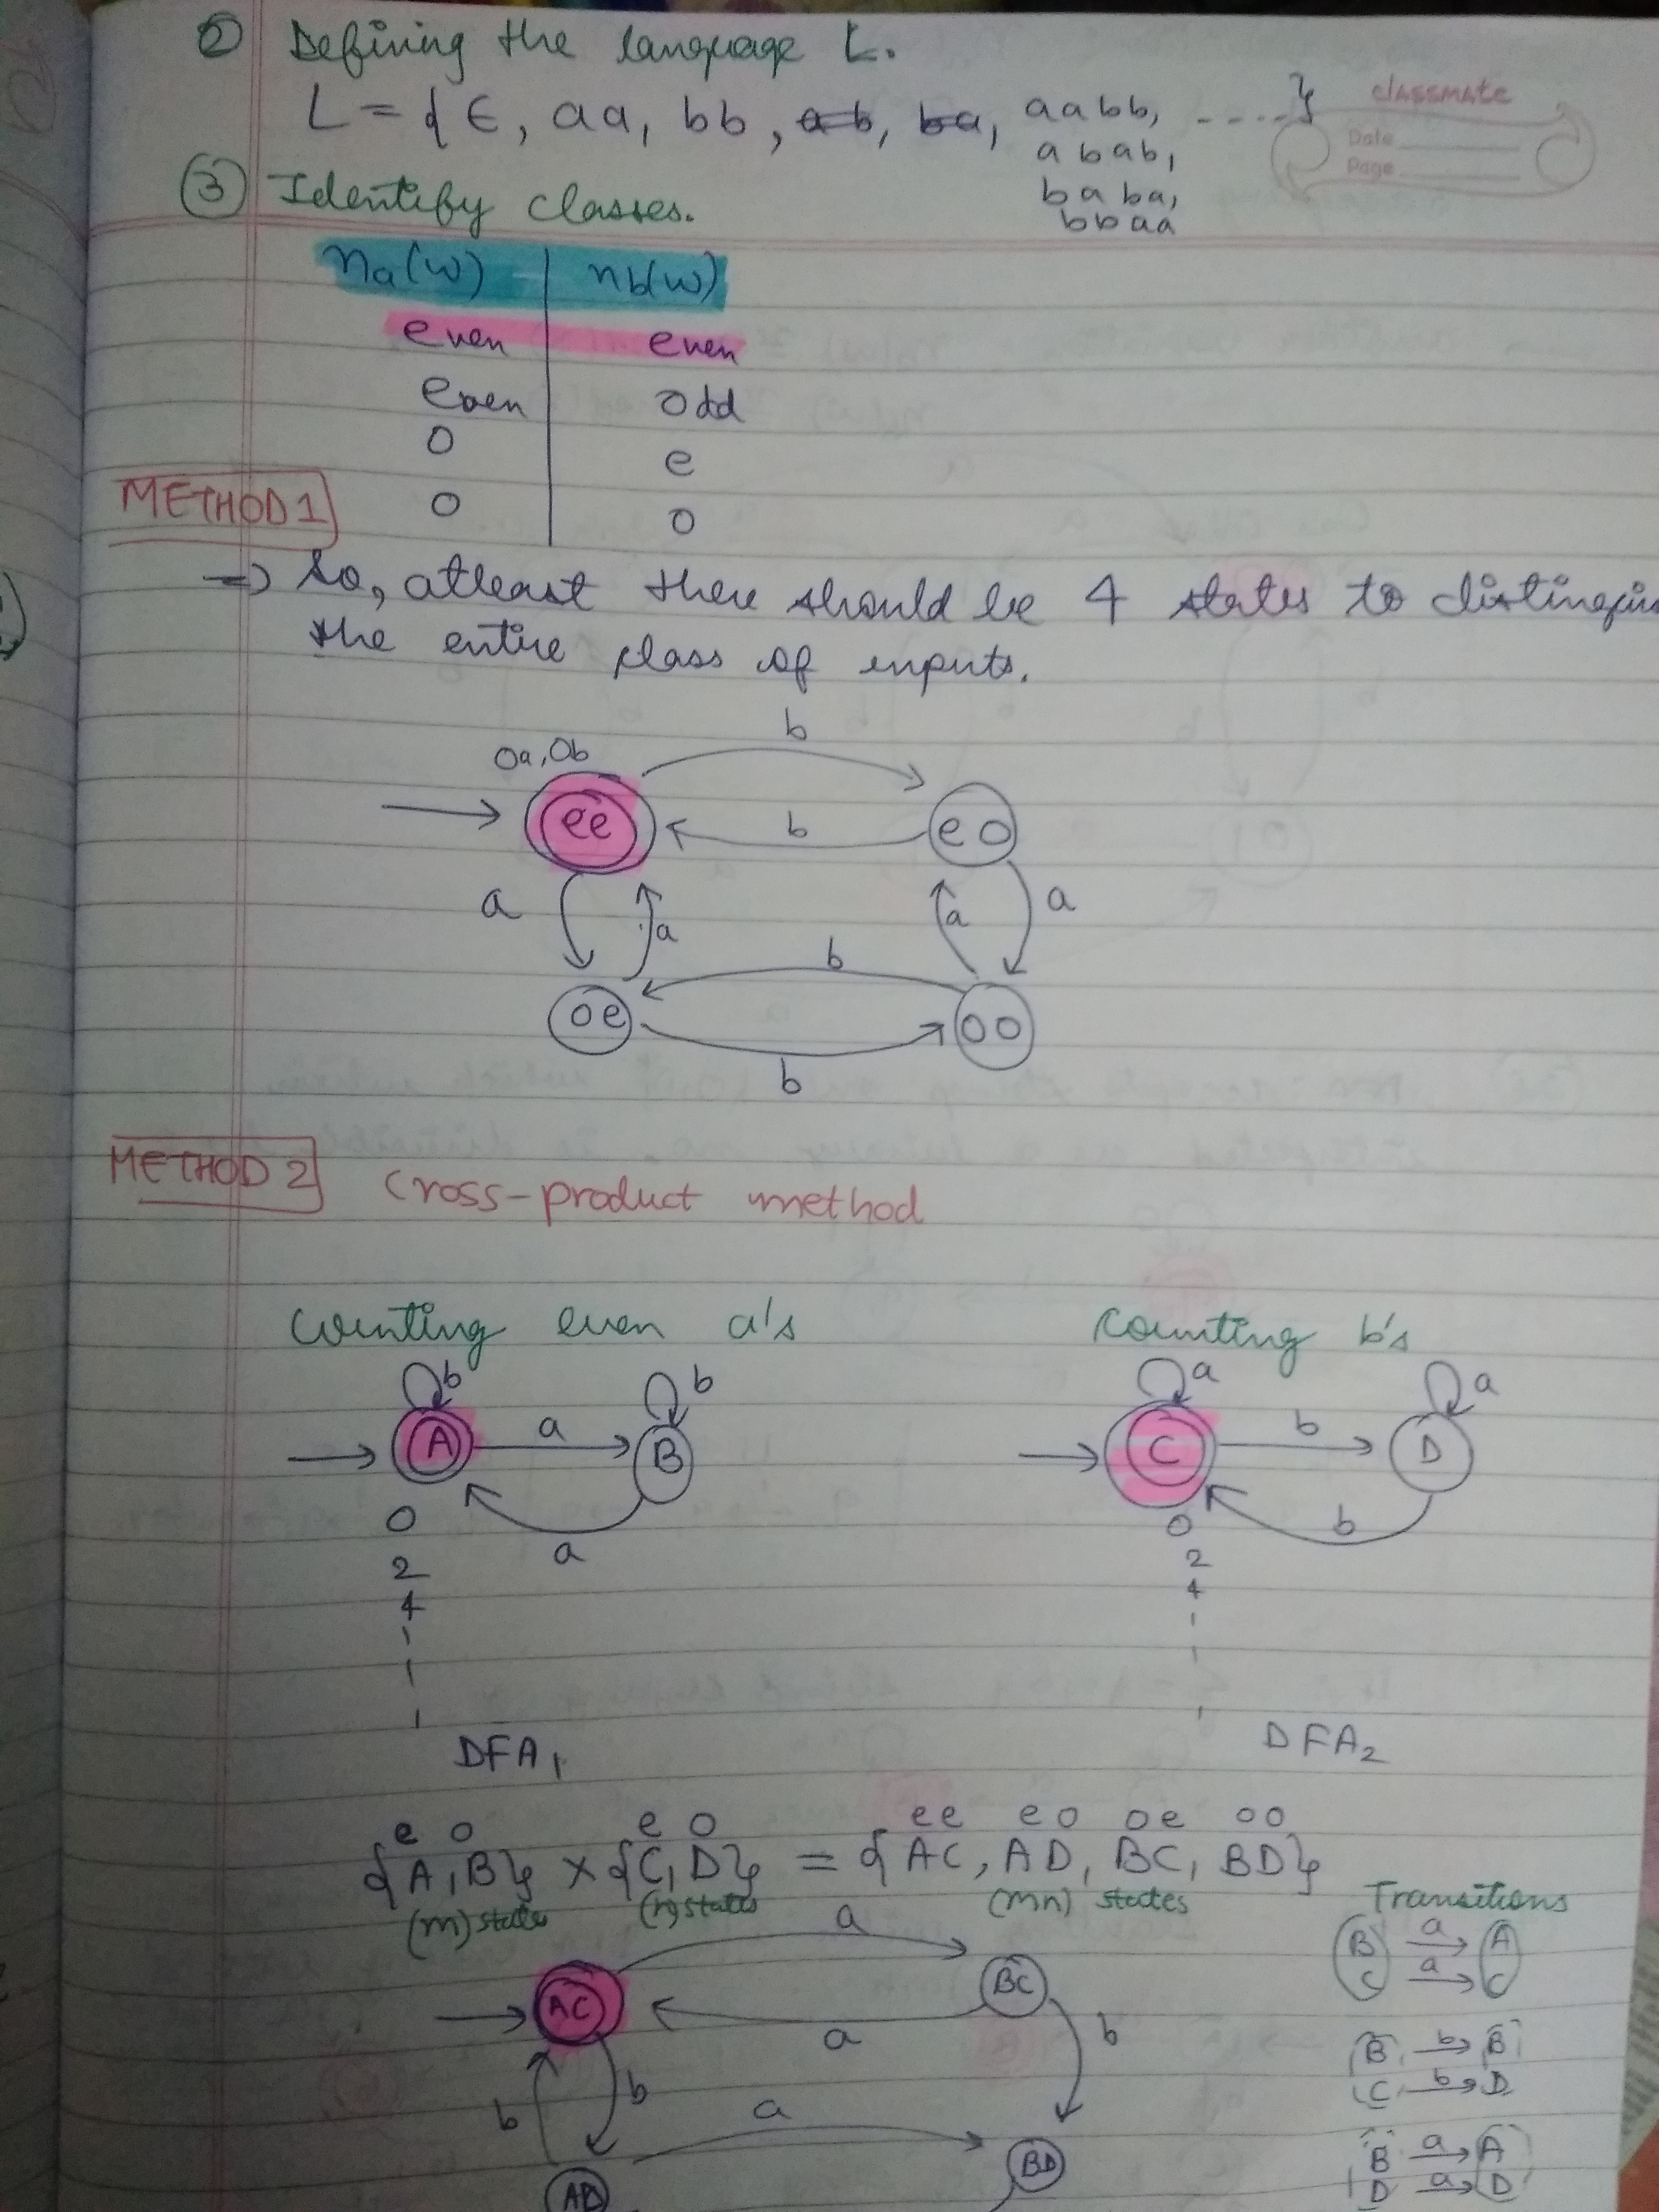 ② Defining the language L.
L = { ∈, aa, bb, ab, ba, aabb, ....}
abab,
baba,
bbaa
classmate
Date
Page
③ Identify classes.
na(w) nb(w)
even even
even odd
o e
o o
METHOD 1
⇒ So, atleast there should be 4 states to
the entire class of inputs.
0a, 0b
b
ee b eo
a a a a
b
oe oo
b
METHOD 2 Cross-product method
Counting even a's Counting b's
b b a a
A a B C b D
a b
0 0
2 2
4 4
DFA1 DFA2
e o e o ee eo oe oo
{A, B} × {C, D} = {AC, AD, BC, BD}
(m) states (n) states (mn) states Transitions
a
AC BC
a b
b b
a
AD BD
B a→ A
C a→ C
B b→ B
C b→ D
B a→ A
D a→ D